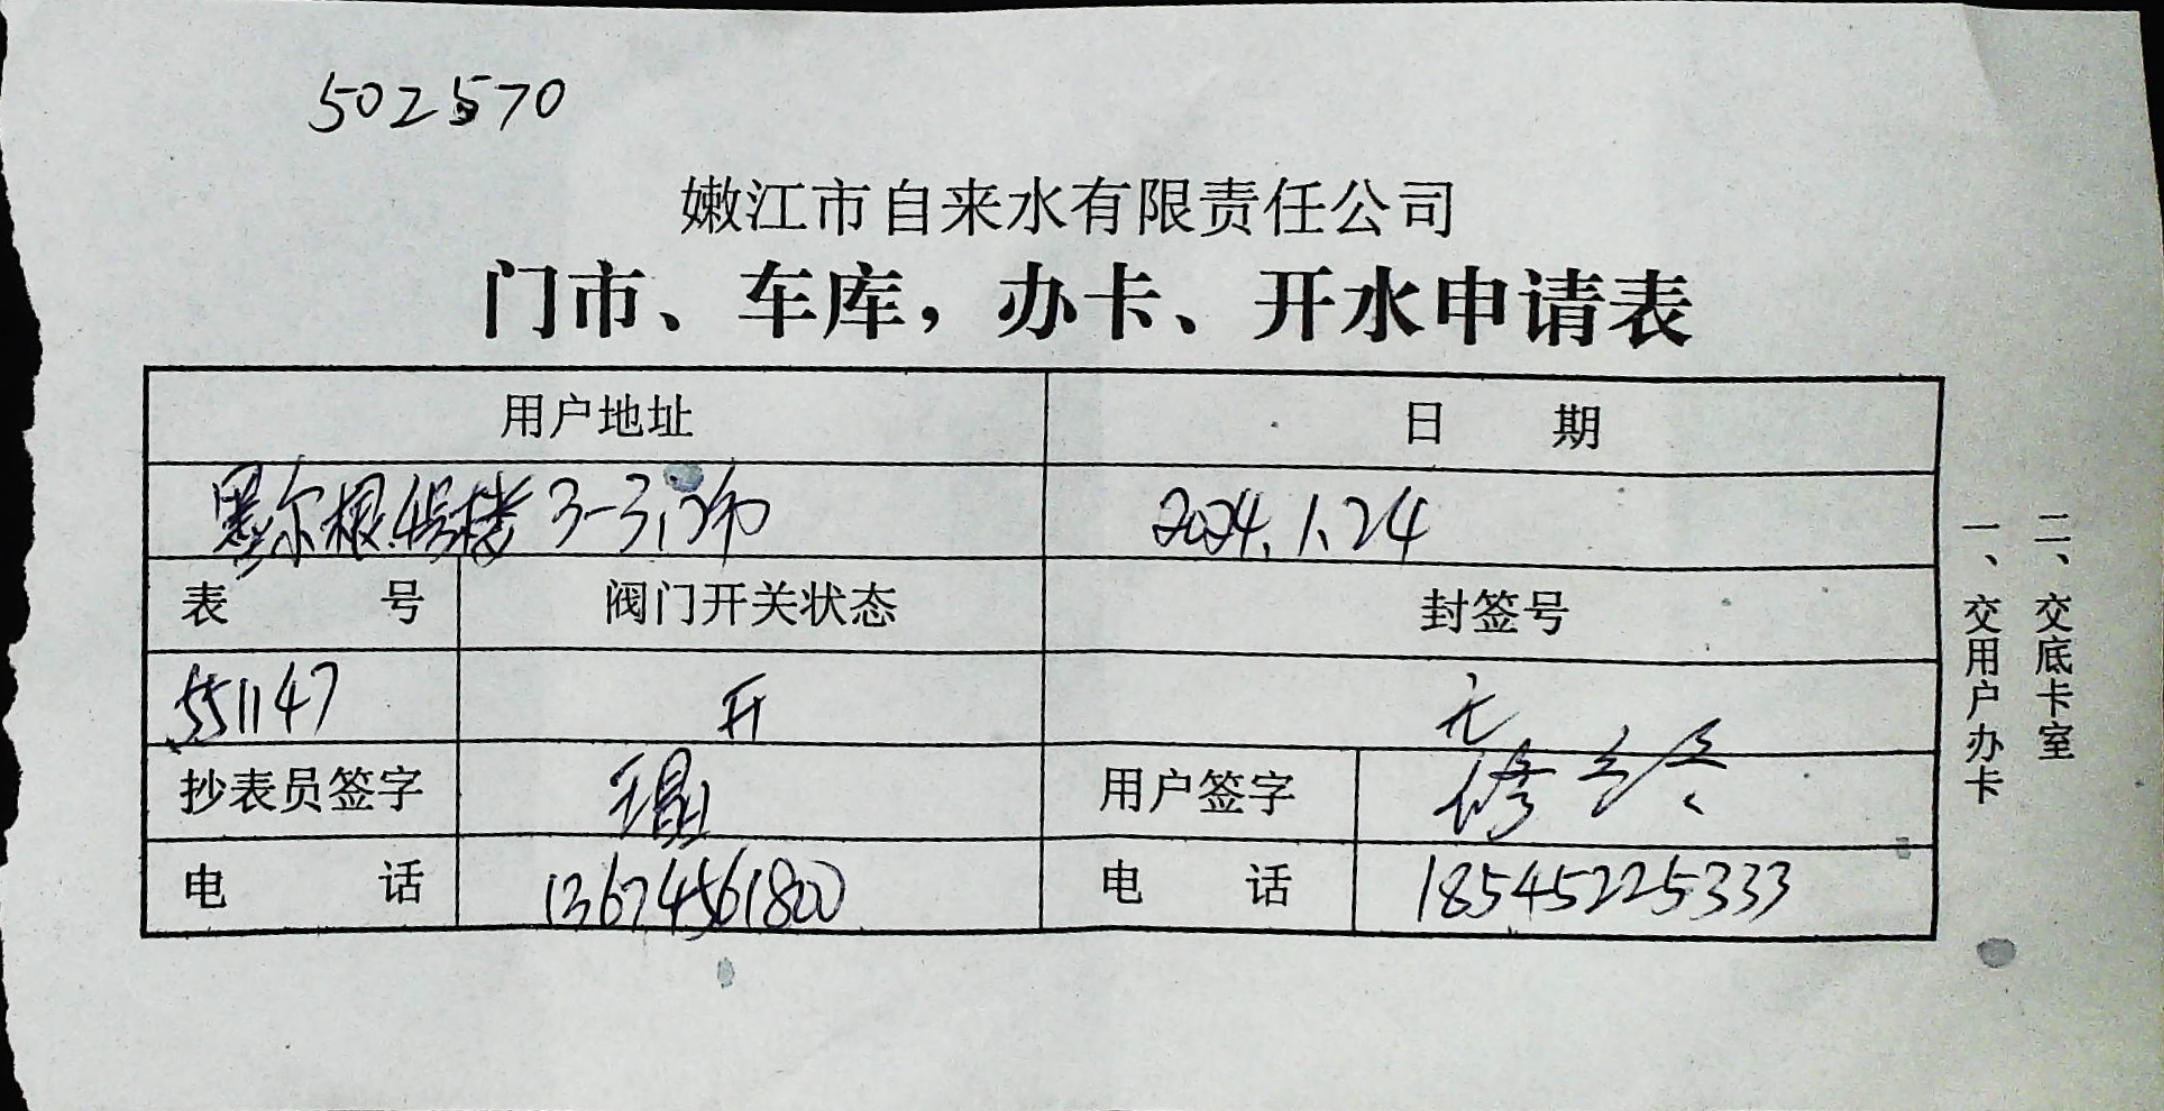 502570
嫩江市自来水有限责任公司
门市、车库，办卡、开水申请表
用户地址 日 期
墨尔根4号楼3-3门市 2024.1.24
表 号 阀门开关状态 封签号
551147 开 无
抄表员签字 用户签字 修
电 话 13674561800 电 话 18545225333
一、交用户办卡
二、交底卡室